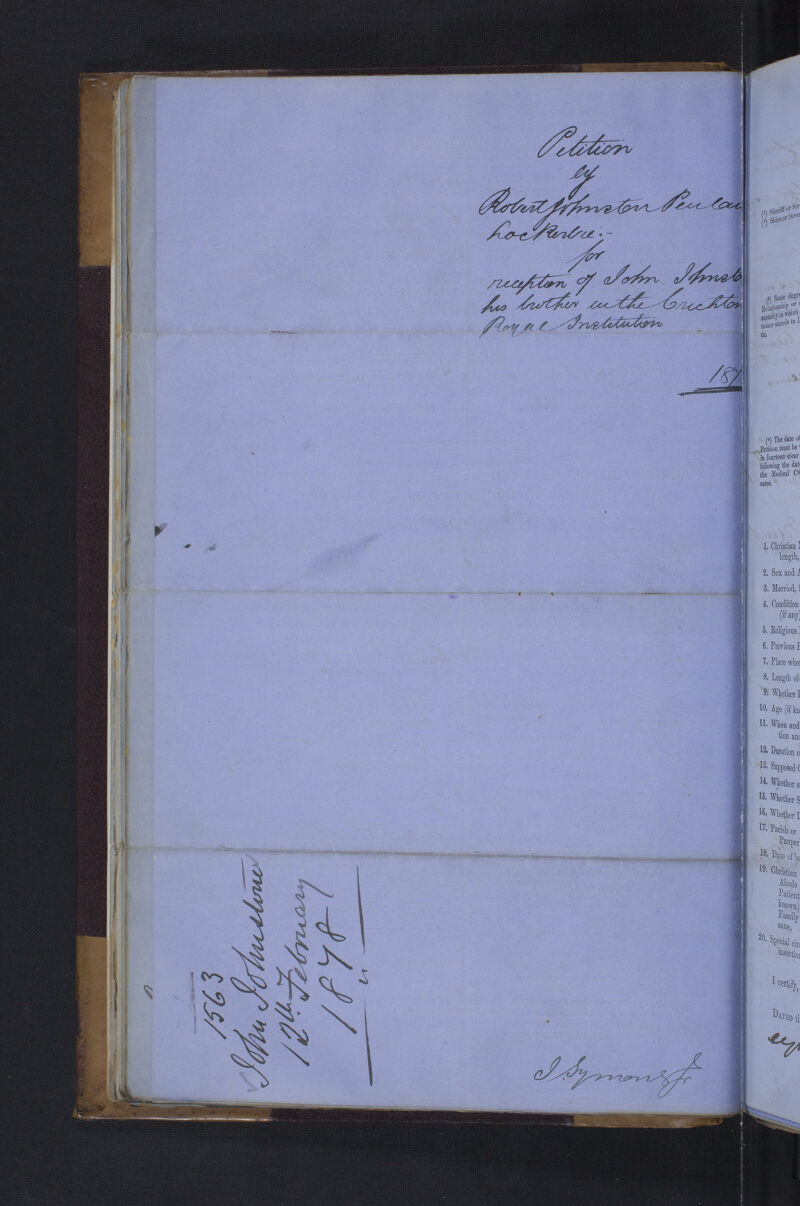 Petition
by
Robert Johnston
Lockerbie:-
for
reception of John Johnst
his brother in the Crichton
Royal Institution
187
1563
John Johnstone
12th February
1878
J. Symons Jr
(¹) Sheriff or
(²) Shire or
(³) State degre
Relationship or
capacity in which
tioner stands to
tic.
(⁴) The date of
Petition must be
in fourteen clear
following the dat
the Medical Ce
cates.
1. Christian
length,
2. Sex and A
3. Married, S
4. Condition
(if any)
5. Religious
6. Previous
7. Place whe
8. Length of
9. Whether
10. Age (if kn
11. When and
tion and
12. Duration o
13. Supposed
14. Whether
15. Whether S
16. Whether
17. Parish or
Pauper
18. Date of
19. Christian
Abode
Patient
known)
Family
sane,
20. Special cir
insertion
I certify,
DATED t